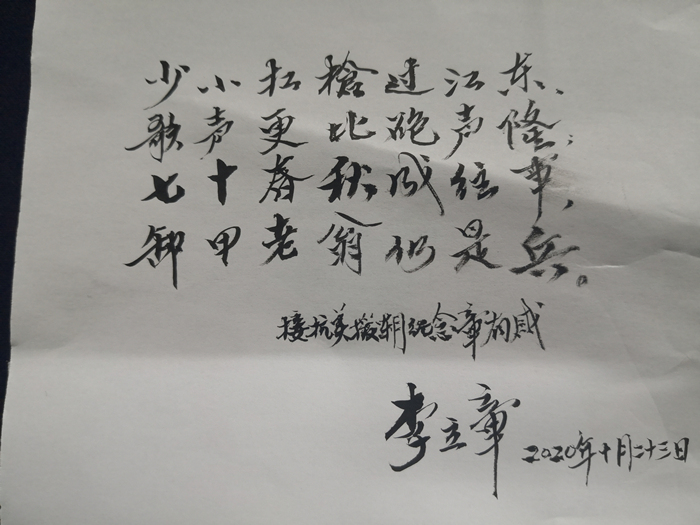 少小扛槍过江东、
歌声更比砲声隆；
七十春秋成往事，
卸甲老翁仍是兵。
接抗美援朝纪念章有感
李立章 2020年十月二十三日